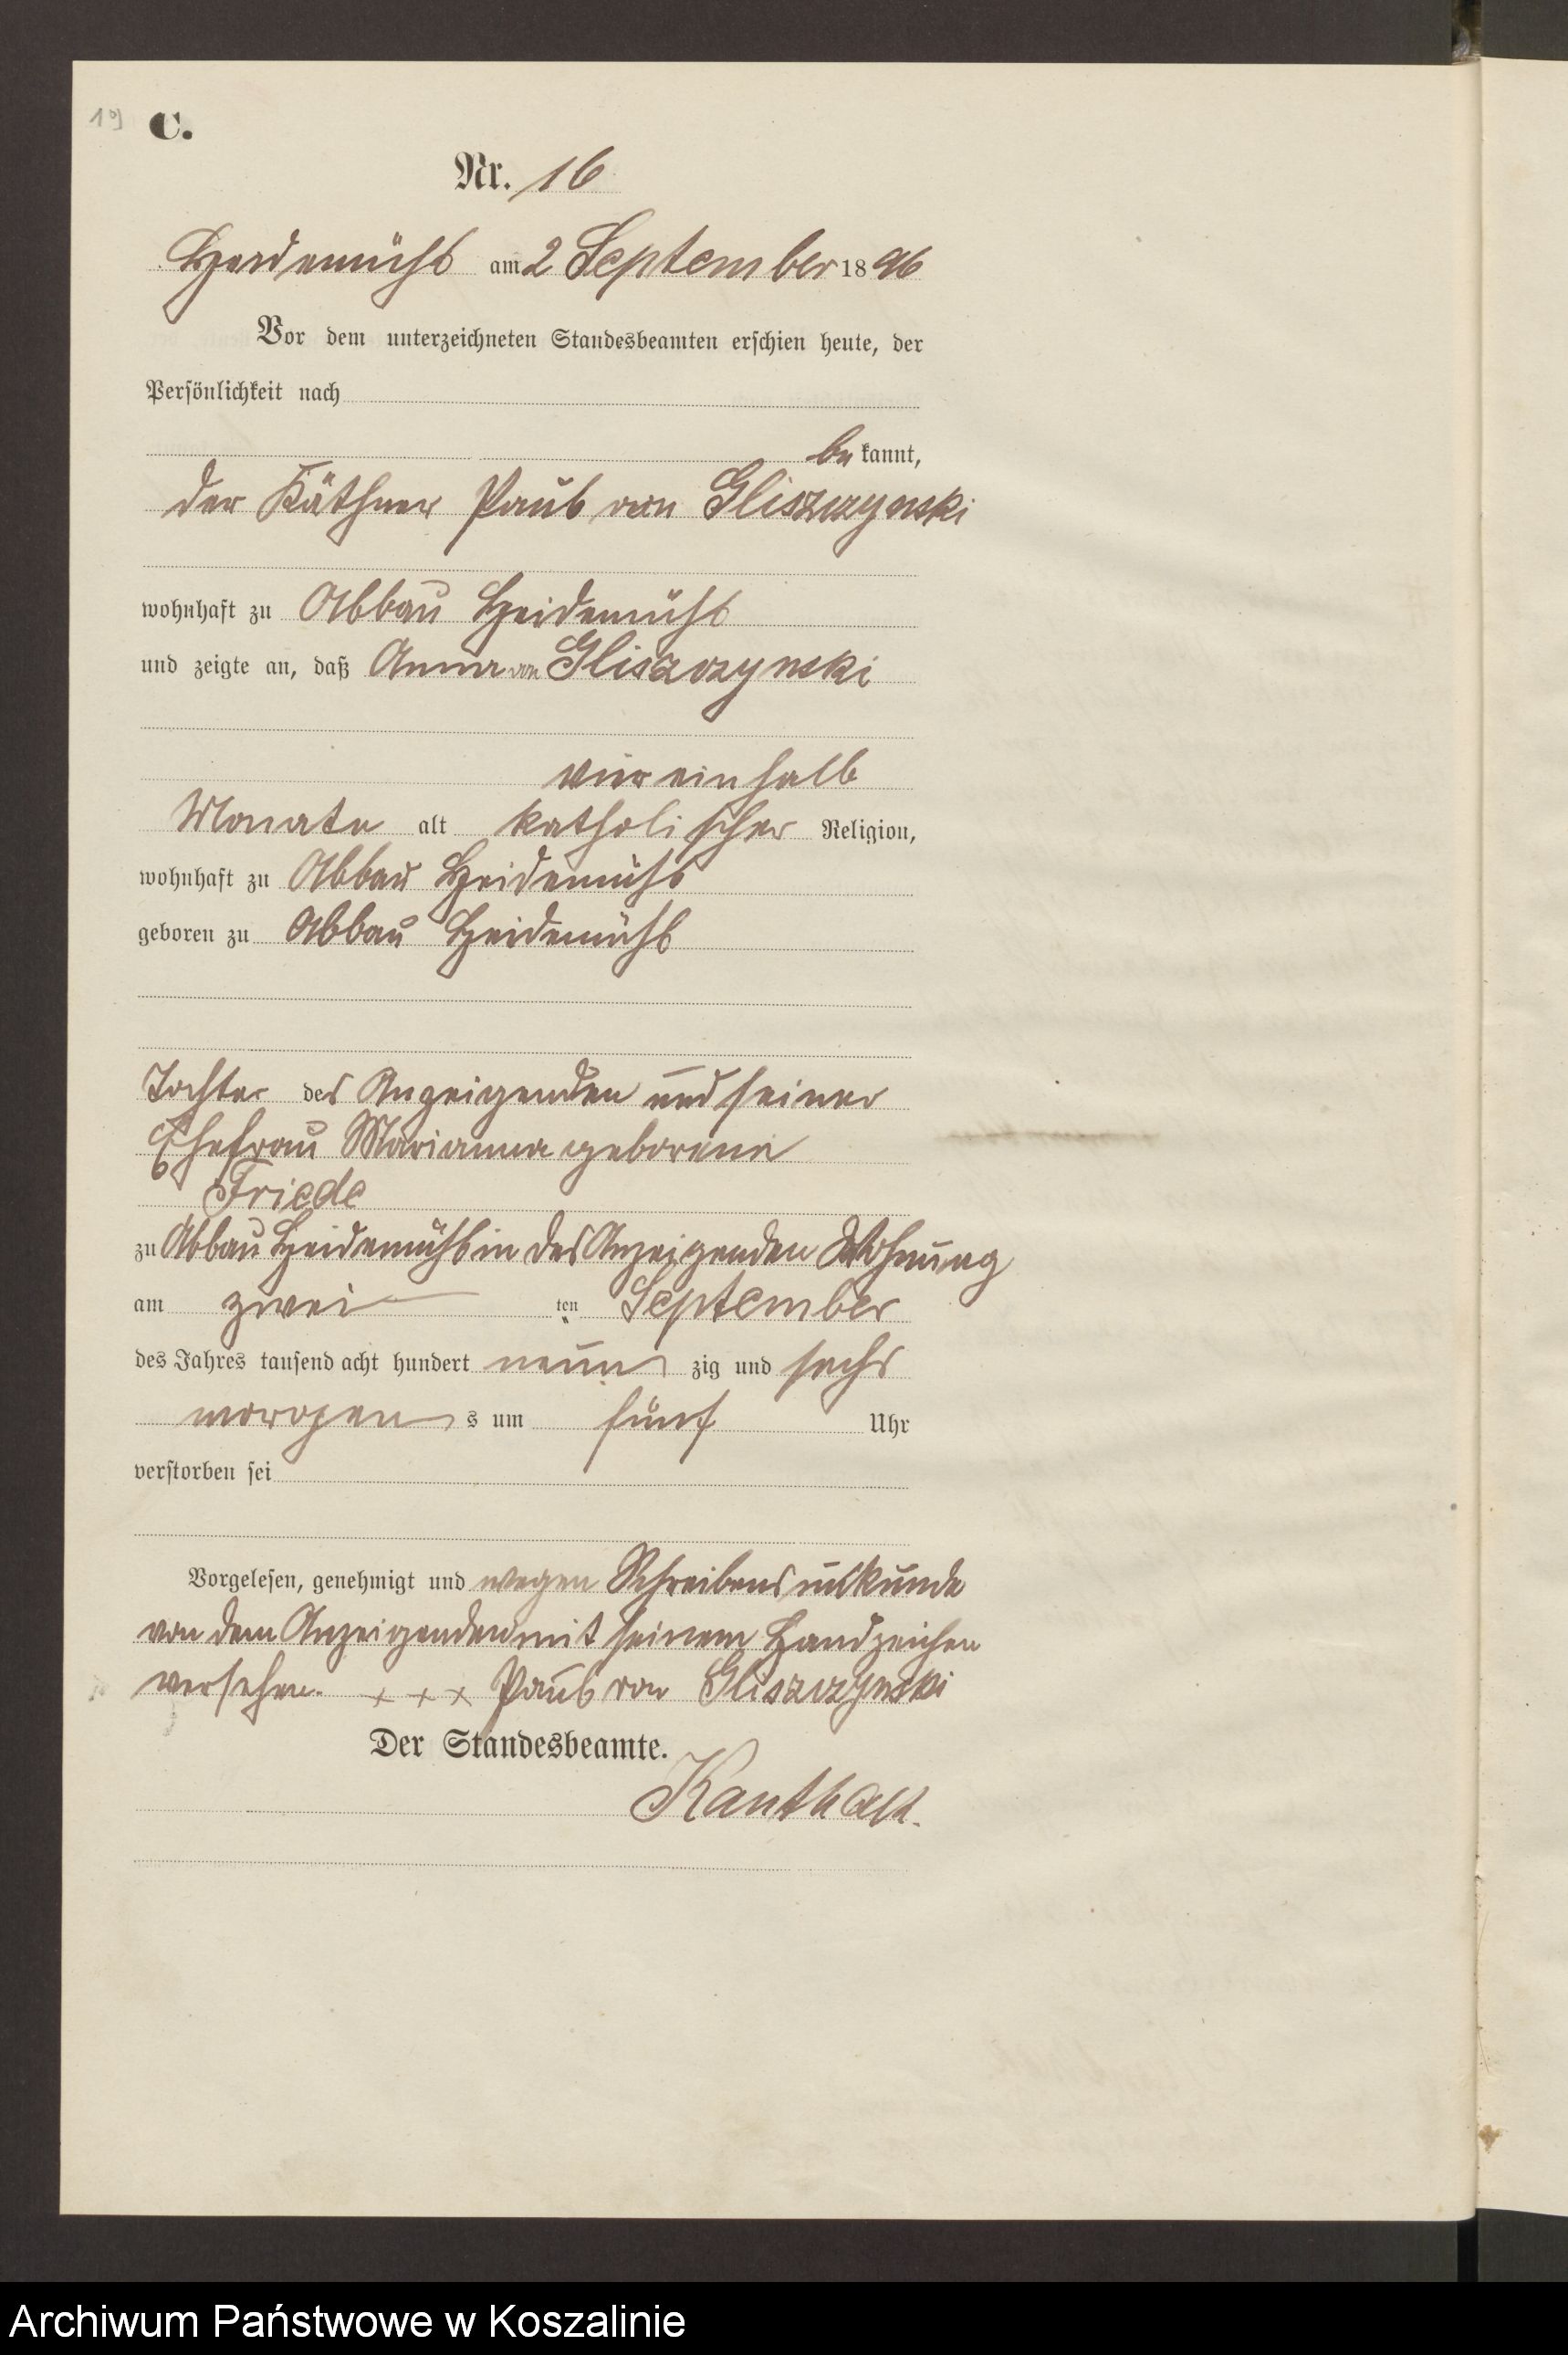 19 C.
Nr. 16
Heidemühl am 2 September 1896
Vor dem unterzeichneten Standesbeamten erschien heute, der
Persönlichkeit nach
be kannt,
der Käthner Paul von Gliszczynski
wohnhaft zu Abbau Heidemühl
und zeigte an, daß Anna von Gliszczynski
vier einhalb
Monate alt katholischer Religion,
wohnhaft zu Abbau Heidemühl
geboren zu Abbau Heidemühl
Tochter des Anzeigenden und seiner
Ehefrau Marianna geborene
Friede
zu Abbau Heidemühl in des Anzeigenden Wohnung
am zwei ten September
des Jahres tausend acht hundert neun zig und sechs
morgen s um fünf Uhr
verstorben sei
Vorgelesen, genehmigt und wegen Schreibensunkunde
von dem Anzeigenden mit seinem Handzeichen
versehen. + + + Paul von Gliszczynski
Der Standesbeamte.
Kanthack.
Archiwum Państwowe w Koszalinie